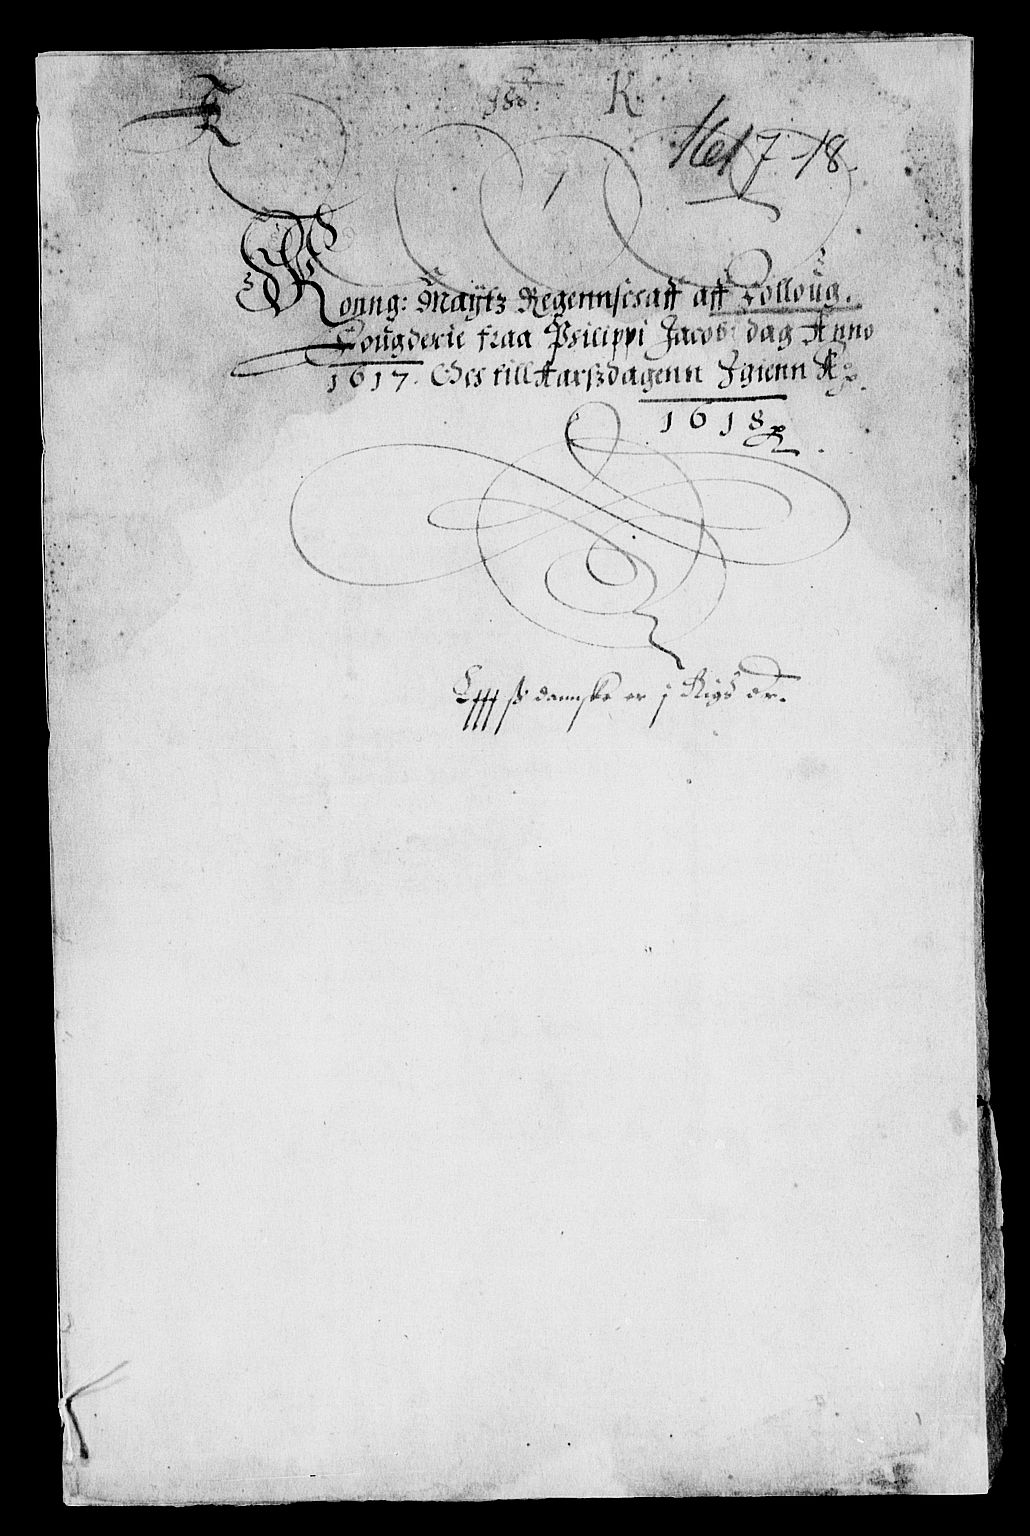 K
1617-18
Konng: Maÿtz Regennschaff aff Folloug.
Fougderie fraa Philippi Jacobi dag Anno
1617. Och till Aarszdagenn Igienn A
1618
ß danske er j Rigs dr.